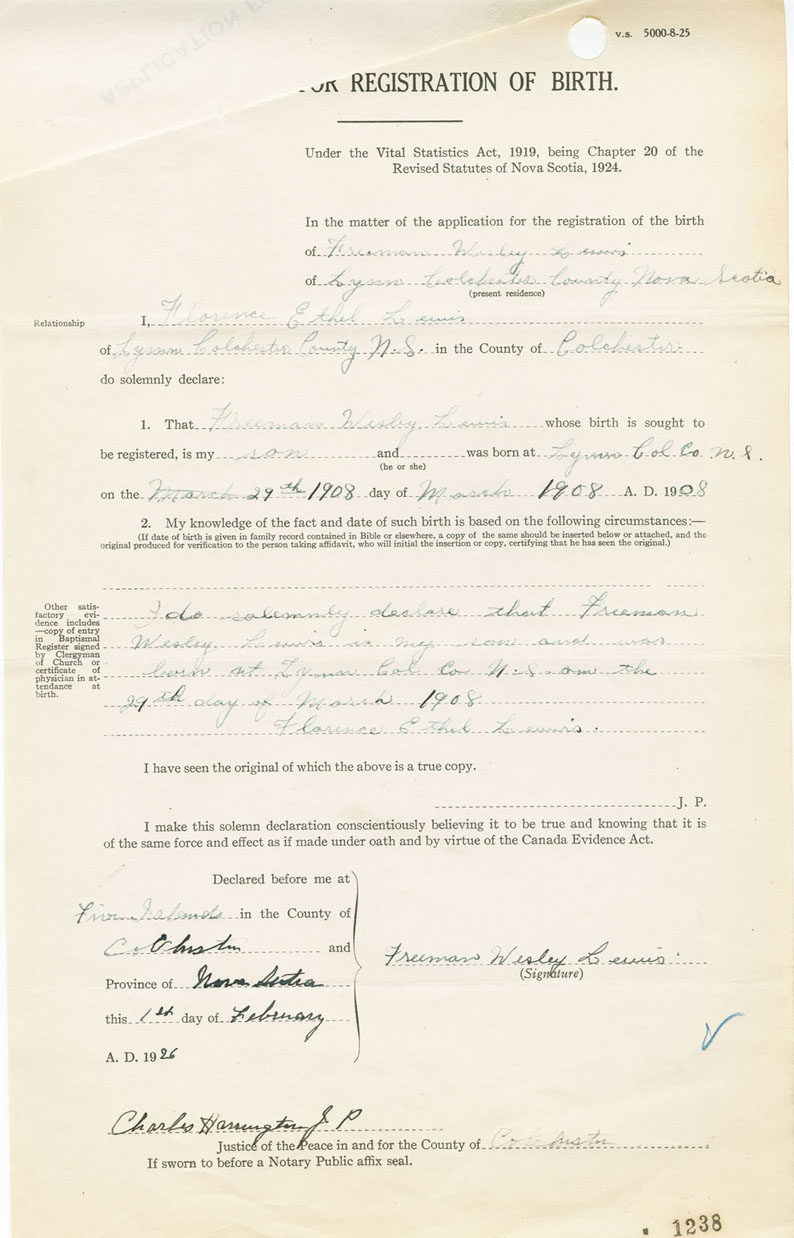 APPLICATION FO
V.S. 5000-8-25
FOR REGISTRATION OF BIRTH.
Under the Vital Statistics Act, 1919, being Chapter 20 of the
Revised Statutes of Nova Scotia, 1924.
In the matter of the application for the registration of the birth
of Freeman Wesley Lewis
of Lynn Colchester County Nova Scotia
(present residence)
Relationship
I, Florence Ethel Lewis
of Lynn Colchester County N.S. in the County of Colchester
do solemnly declare:
1. That Freeman Wesley Lewis whose birth is sought to
be registered, is my son and was born at Lynn Col Co N.S.
(he or she)
on the March 29th 1908 day of March 1908 A. D. 1908
2. My knowledge of the fact and date of such birth is based on the following circumstances:—
(If date of birth is given in family record contained in Bible or elsewhere, a copy of the same should be inserted below or attached, and the
original produced for verification to the person taking affidavit, who will initial the insertion or copy, certifying that he has seen the original.)
Other satis-
factory evi-
dence includes
—copy of entry
in Baptismal
Register signed
by Clergyman
of Church or
certificate of
physician in at-
tendance at
birth.
I do solemnly declare that Freeman
Wesley Lewis is my son and was
born at Lynn Col Co N.S on the
29th day of March 1908
Florence Ethel Lewis.
I have seen the original of which the above is a true copy.
J. P.
I make this solemn declaration conscientiously believing it to be true and knowing that it is
of the same force and effect as if made under oath and by virtue of the Canada Evidence Act.
Declared before me at
Five Islands in the County of
Colchester and
Province of Nova Scotia
this 1st day of February
A. D. 1926
Freeman Wesley Lewis
(Signature)
Charles Harrington J P
Justice of the Peace in and for the County of Colchester
If sworn to before a Notary Public affix seal.
1238